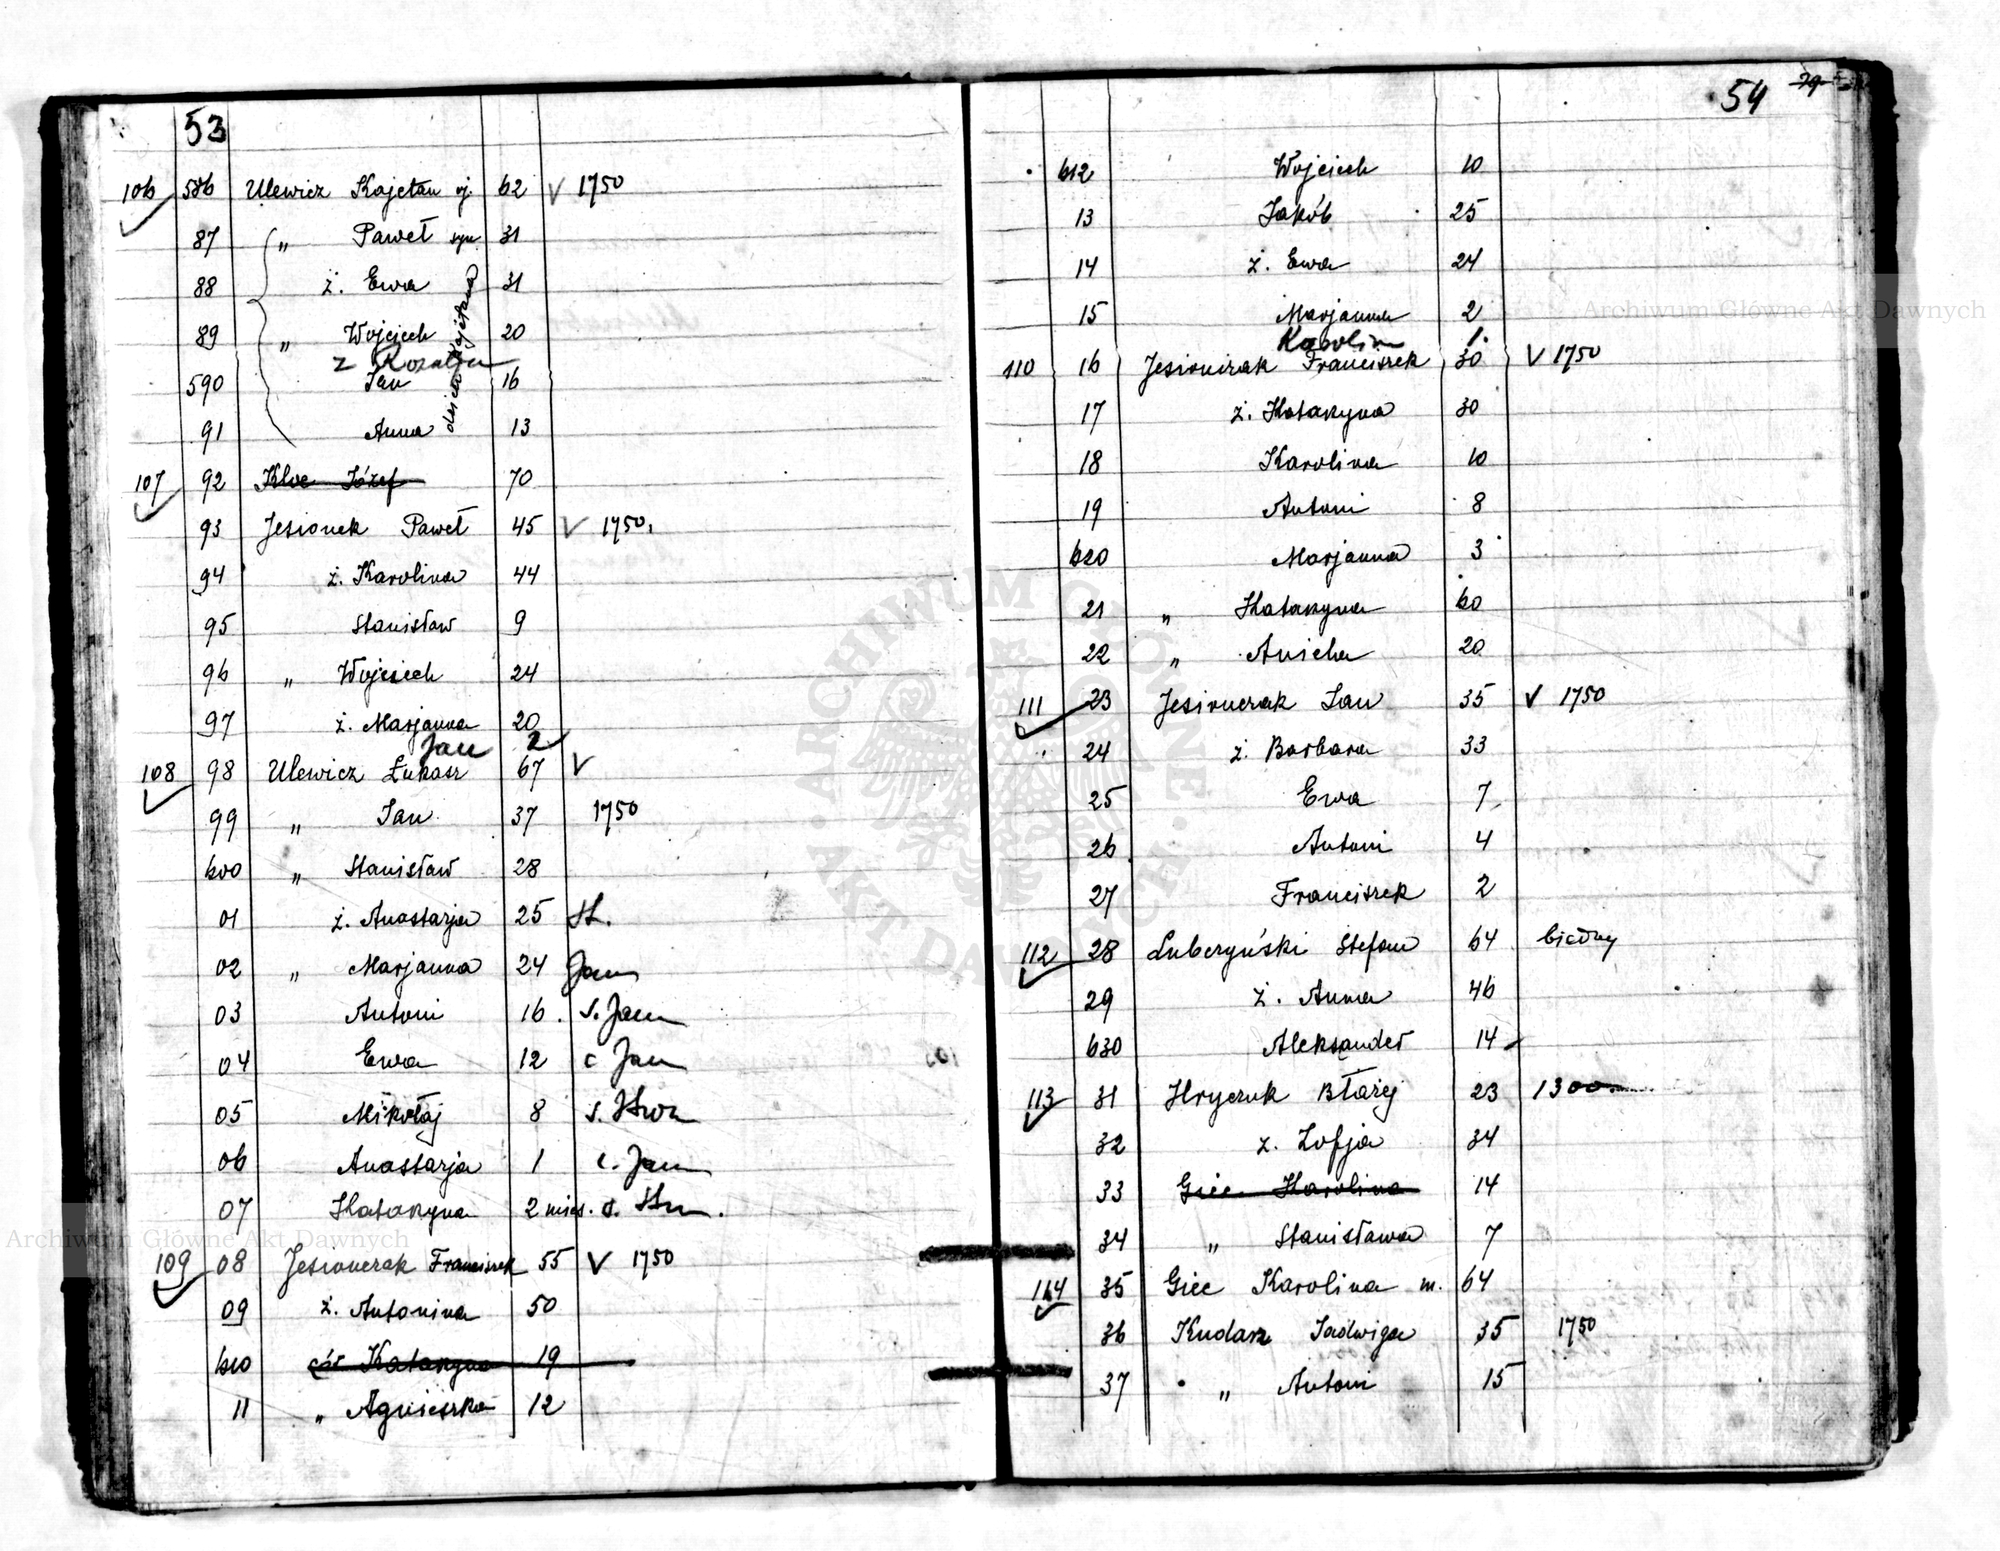 53
106 586 Ulewicz Kajetan oj. 62 V 1750
87 „ Paweł syn 31
88 ż. Ewa 31
89 „ Wojciech 20
z Rozalia
590 Jan 16
91 Anna 13
dzieci Kajetana
107 92 Kloc Józef 70
93 Jesionek Paweł 45 V 1750.
94 ż. Karolina 44
95 Stanisław 9
96 „ Wojciech 24
97 ż. Marjanna 20
Jan 2
108 98 Ulewicz Łukasz 67 V
99 „ Jan 37 1750
600 „ Stanisław 28
01 ż. Anastazja 25 St.
02 „ Marjanna 24 Jana
03 Antoni 16 s. Jana
04 Ewa 12 c Jan
05 Mikołaj 8 s.
06 Anastazja 1 c. Jana
07 Katarzyna 2 mies. c.
109 08 Jesionczak Franciszek 55 V 1750
09 ż. Antonina 50
610 cór Katarzyna 19
11 „ Agnieszka 12
54
612 Wojciech 10
13 Jakób 25
14 ż. Ewa 24
15 Marjanna 2
Karolina 1.
110 16 Jesionczak Franciszek 30 V 1750
17 ż. Katarzyna 30
18 Karolina 10
19 Antoni 8
620 Marjanna 3
21 „ Katarzyna 60
22 „ Anicha 20
111 23 Jesionczak Jan 35 V 1750
24 ż. Barbara 33
25 Ewa 7
26 Antoni 4
27 Franciszek 2
112 28 Luberzyński Stefan 64 biedny
29 ż. Anna 46
630 Aleksander 14
113 31 Hryczuk Błażej 23 1300
32 ż. Zofja 34
33 Giec Karolina 14
34 „ Stanisława 7
114 35 Giec Karolina m. 64
36 Kudasz Jadwiga 35 1750
37 „ Antoni 15
Archiwum Główne Akt Dawnych
Archiwum Główne Akt Dawnych
ARCHIWUM GŁÓWNE AKT DAWNYCH